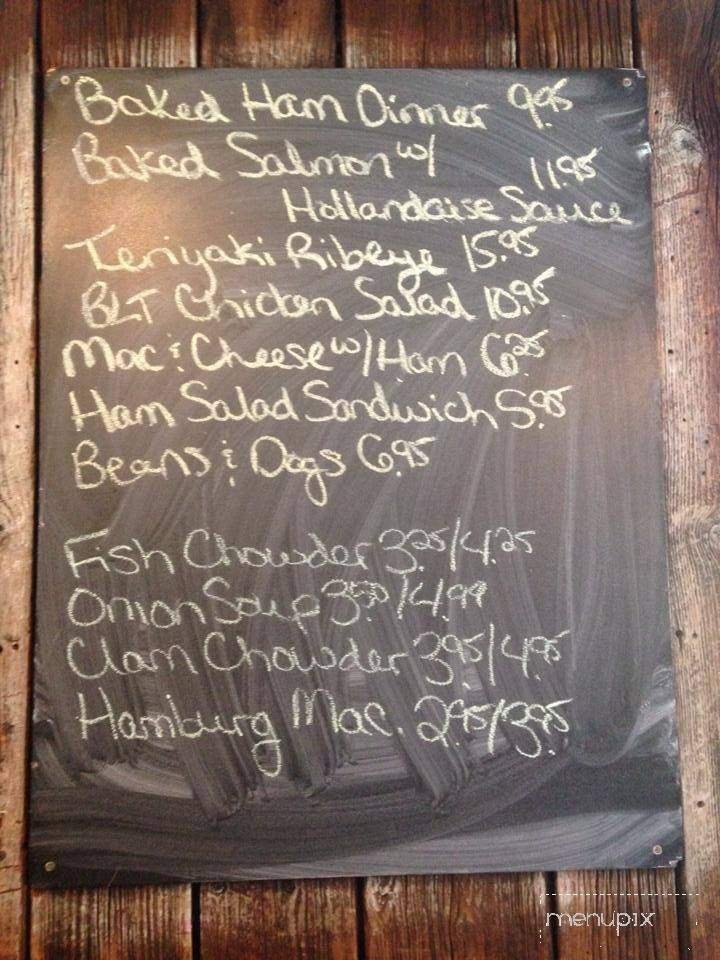 Baked Ham Dinner 9.95
Baked Salmon w/ 11.95
Hollandaise Sauce
Teriyaki Ribeye 15.95
BLT Chicken Salad 10.95
Mac & Cheese w/ Ham 6.25
Ham Salad Sandwich 5.95
Beans & Dogs 6.95
Fish Chowder 3.25/4.25
Onion Soup 3.50/4.99
Clam Chowder 3.95/4.95
Hamburg Mac. 2.95/3.95
menupix